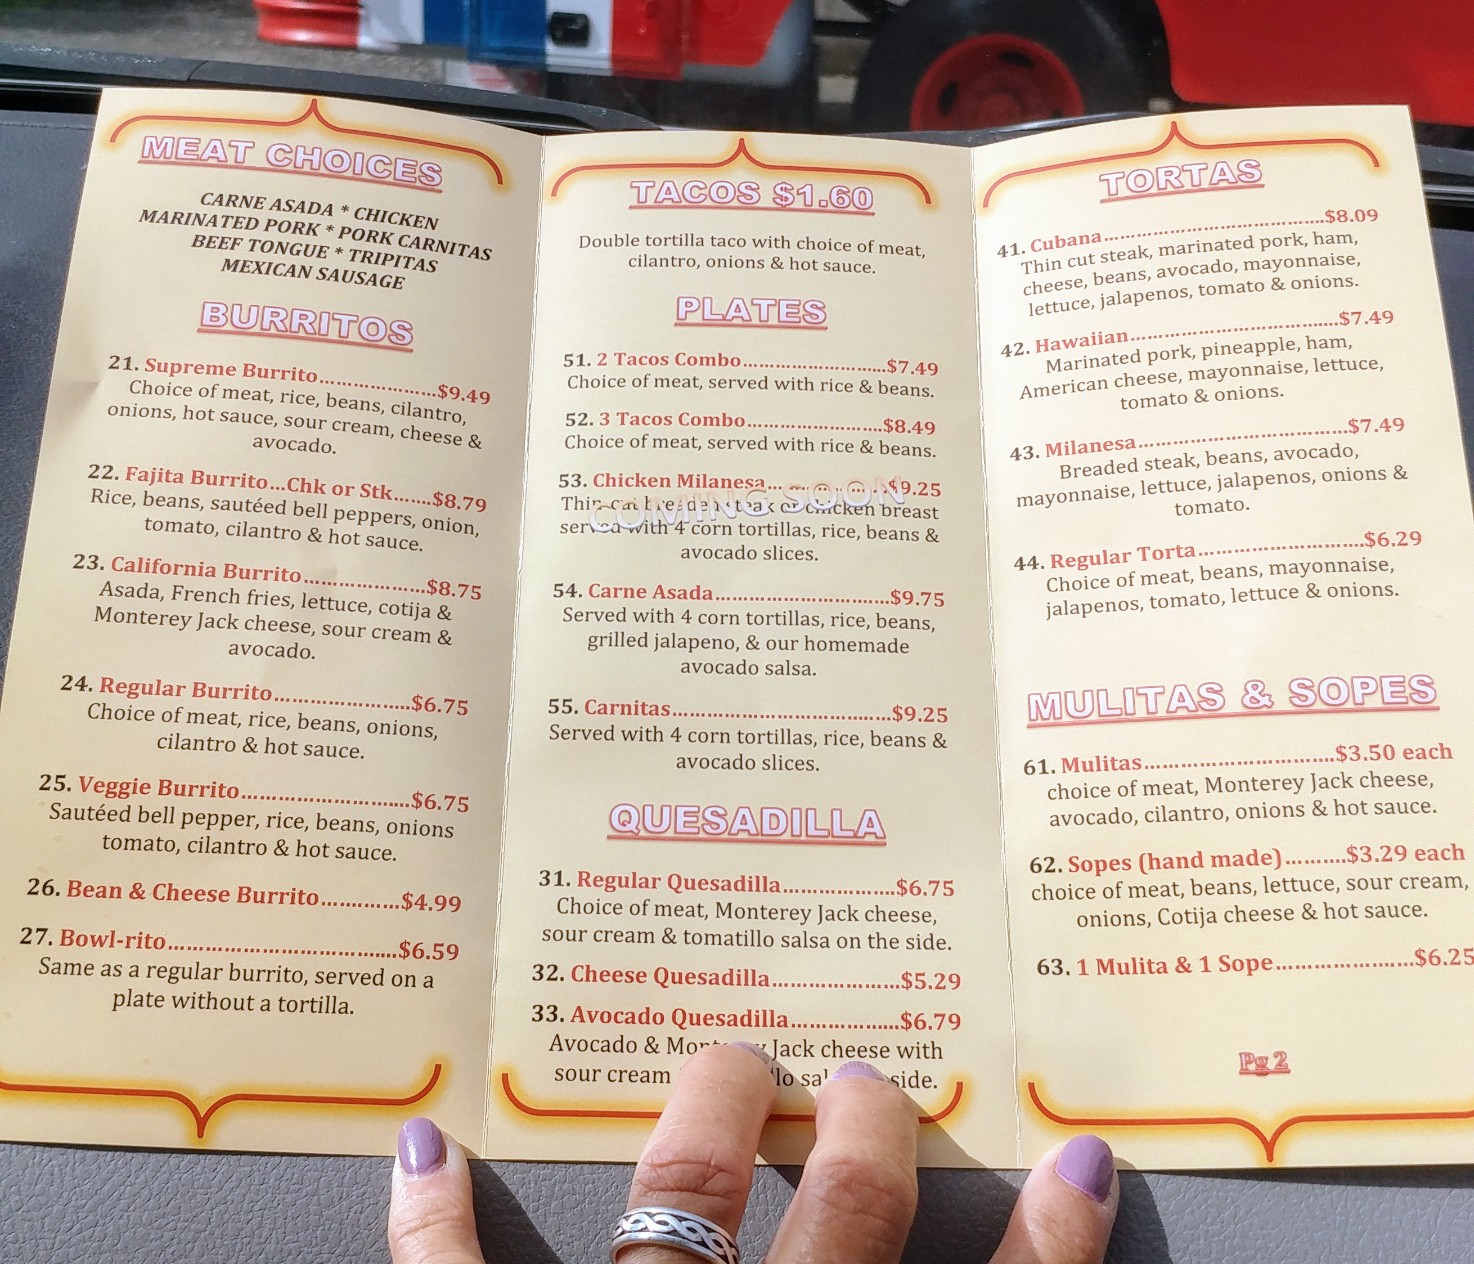 MEAT CHOICES
CARNE ASADA * CHICKEN
MARINATED PORK * PORK CARNITAS
BEEF TONGUE * TRIPITAS
MEXICAN SAUSAGE
BURRITOS
21. Supreme Burrito....................$9.49
Choice of meat, rice, beans, cilantro,
onions, hot sauce, sour cream, cheese &
avocado.
22. Fajita Burrito...Chk or Stk.......$8.79
Rice, beans, sautéed bell peppers, onion,
tomato, cilantro & hot sauce.
23. California Burrito....................$8.75
Asada, French fries, lettuce, cotija &
Monterey Jack cheese, sour cream &
avocado.
24. Regular Burrito.......................$6.75
Choice of meat, rice, beans, onions,
cilantro & hot sauce.
25. Veggie Burrito............................$6.75
Sautéed bell pepper, rice, beans, onions
tomato, cilantro & hot sauce.
26. Bean & Cheese Burrito.............$4.99
27. Bowl-rito......................................$6.59
Same as a regular burrito, served on a
plate without a tortilla.
TACOS $1.60
Double tortilla taco with choice of meat,
cilantro, onions & hot sauce.
PLATES
51. 2 Tacos Combo........................$7.49
Choice of meat, served with rice & beans.
52. 3 Tacos Combo.......................$8.49
Choice of meat, served with rice & beans.
53. Chicken Milanesa....................$9.25
COMING SOON
Thin cut breaded steak or chicken breast
served with 4 corn tortillas, rice, beans &
avocado slices.
54. Carne Asada.............................$9.75
Served with 4 corn tortillas, rice, beans,
grilled jalapeno, & our homemade
avocado salsa.
55. Carnitas.....................................$9.25
Served with 4 corn tortillas, rice, beans &
avocado slices.
QUESADILLA
31. Regular Quesadilla...................$6.75
Choice of meat, Monterey Jack cheese,
sour cream & tomatillo salsa on the side.
32. Cheese Quesadilla.....................$5.29
33. Avocado Quesadilla..................$6.79
Avocado & Monterey Jack cheese with
sour cream side.
TORTAS
41. Cubana.....................................$8.09
Thin cut steak, marinated pork, ham,
cheese, beans, avocado, mayonnaise,
lettuce, jalapenos, tomato & onions.
42. Hawaiian...................................$7.49
Marinated pork, pineapple, ham,
American cheese, mayonnaise, lettuce,
tomato & onions.
43. Milanesa...................................$7.49
Breaded steak, beans, avocado,
mayonnaise, lettuce, jalapenos, onions &
tomato.
44. Regular Torta............................$6.29
Choice of meat, beans, mayonnaise,
jalapenos, tomato, lettuce & onions.
MULITAS & SOPES
61. Mulitas................................$3.50 each
choice of meat, Monterey Jack cheese,
avocado, cilantro, onions & hot sauce.
62. Sopes (hand made)..........$3.29 each
choice of meat, beans, lettuce, sour cream,
onions, Cotija cheese & hot sauce.
63. 1 Mulita & 1 Sope.......................$6.25
Pg 2